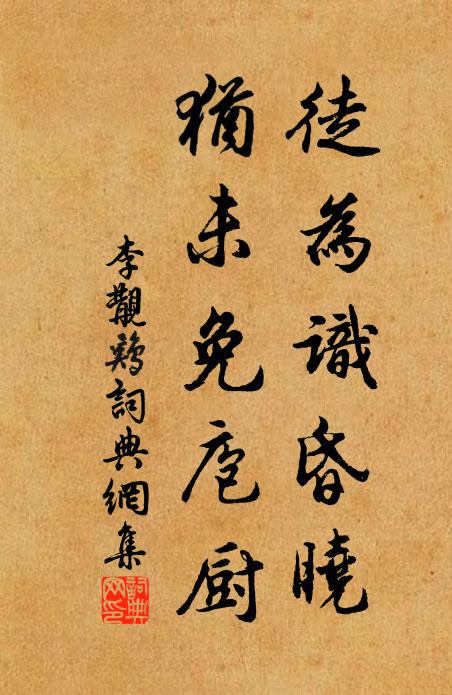 徒為識昏曉
猶未免庖厨
李覯鷄詞典網集
詞典网印